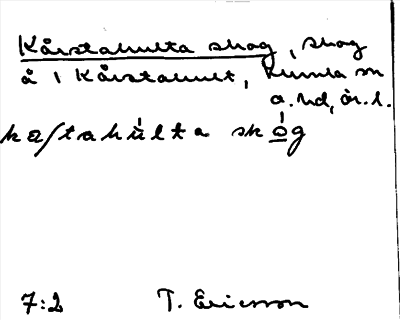 Kårstahulta skog, skog
å 1 Kårstahult, Kumla sn
a. hd, ör. l.
ka/tahúlta skǫ́g
7:2 T. Ericsson